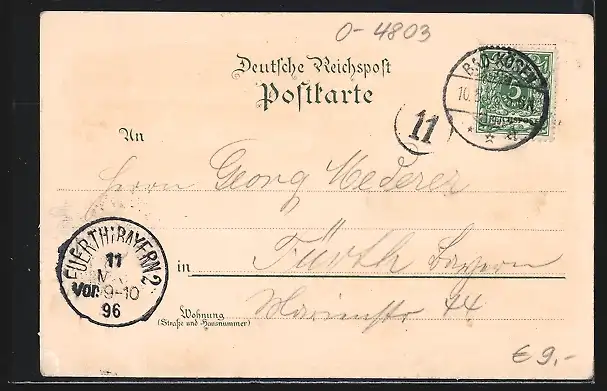 0-4803
Deutsche Reichspost
Postkarte
BAD KÖSEN
10.
5
11
An
Herrn Georg Mederer
in Fürth Bayern
Wohnung
(Straße und Hausnummer)
Marienstr 44
FUERTH(BAYERN)2.
11
VOR 9-10
96
€ 9,-